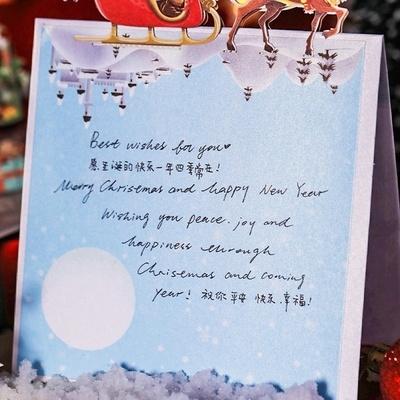 Best wishes for you♥
愿圣诞的快乐一年四季常在!
Merry Christmas and happy New Year
Wishing you peace. joy and
happiness through
Chrisemas and coming
Year! 祝你平安 快乐.幸福!